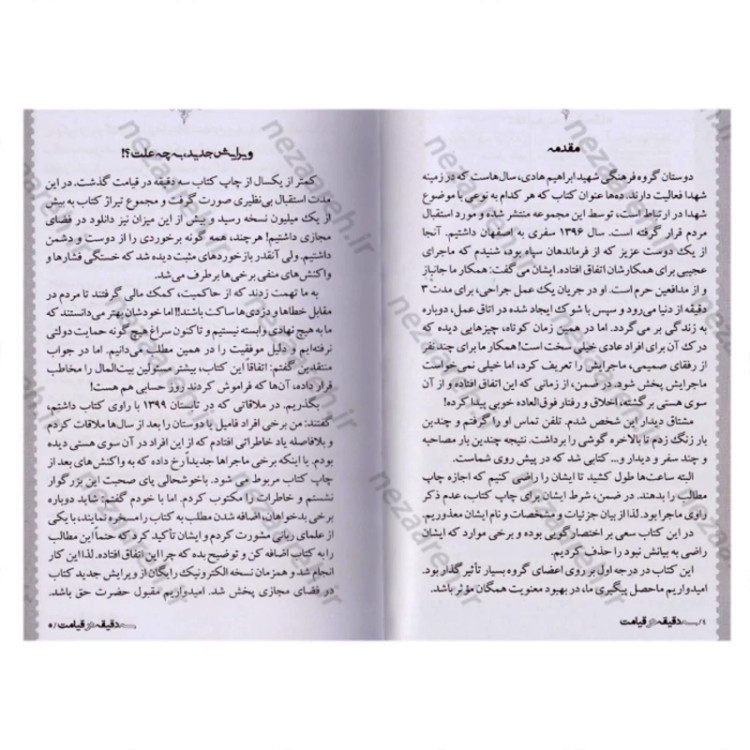 مقدمه
دوستان گروه فرهنگی شهید ابراهیم هادی، سال‌هاست که در زمینه
شهدا فعالیت دارند. ده‌ها عنوان کتاب که هر کدام به نوعی با موضوع
شهدا در ارتباط است، توسط این مجموعه منتشر شده و مورد استقبال
مردم قرار گرفته است. سال ۱۳۹۶ سفری به اصفهان داشتیم. آنجا
از یک دوست عزیز که از فرماندهان سپاه بود، شنیدم که ماجرای
عجیبی برای همکارشان اتفاق افتاده. ایشان می گفت: همکار ما جانباز
و از مدافعین حرم است. او در جریان یک عمل جراحی، برای مدت ۳
دقیقه از دنیا می‌رود و سپس با شوک ایجاد شده در اتاق عمل، دوباره
به زندگی بر می‌گردد. اما در همین زمان کوتاه، چیزهایی دیده که
درک آن برای افراد عادی خیلی سخت است! همکار ما برای چند نفر
از رفقای صمیمی، ماجرایش را تعریف کرد، اما خیلی نمی‌خواست
ماجرایش پخش شود. در ضمن، از زمانی که این اتفاق افتاده و از آن
سوی هستی برگشته، اخلاق و رفتار فوق‌العاده خوبی پیدا کرده!
مشتاق دیدار این شخص شدم. تلفن تماس او را گرفتم و چندین
بار زنگ زدم تا بالاخره گوشی را برداشت. نتیجه چندین بار مصاحبه
و چند سفر و دیدار و... کتابی شد که در پیش روی شماست.
البته ساعت‌ها طول کشید تا ایشان را راضی کنیم که اجازه چاپ
مطالب را بدهند. در ضمن، شرط ایشان برای چاپ کتاب، عدم ذکر نام
راوی ماجرا بود. لذا از بیان جزئیات و مشخصات و نام ایشان معذوریم.
در این کتاب سعی بر اختصارگویی بوده و برخی موارد که ایشان
راضی به بیانش نبود را حذف کردیم.
این کتاب در درجه اول بر روی اعضای گروه بسیار تأثیرگذار بود.
امیدواریم ماحصل پیگیری ما، در بهبود معنویت همگان مؤثر باشد.
دقیقه در قیامت
ویرایش جدید، به چه علت؟!
کمتر از یکسال از چاپ کتاب سه دقیقه در قیامت گذشت. در این
مدت استقبال بی‌نظیری صورت گرفت و مجموع تیراژ کتاب به بیش
از یک میلیون نسخه رسید و بیش از این میزان نیز دانلود در فضای
مجازی داشتیم! هرچند، همه گونه برخوردی را از دوست و دشمن
داشتیم. ولی آنقدر بازخوردهای مثبت دیده شد که خستگی فشارها و
واکنش‌های منفی برخی‌ها برطرف می‌شد.
به ما تهمت زدند که از حاکمیت، کمک مالی گرفتند تا مردم در
مقابل خطاها و دزدی ها ساکت باشند!! اما خودشان بهتر می‌دانستند که
ما به هیچ نهادی وابسته نیستیم و تاکنون سراغ هیچ گونه حمایت دولتی
نرفته‌ایم و دلیل موفقیت را در همین مطلب می‌دانیم. اما در جواب
منتقدین گفتم: اتفاقا این کتاب، بیشتر مسئولین بیت‌المال را مخاطب
قرار داده، آن‌ها که فراموش کردند روز حسابی هم هست!
بگذریم. در ملاقاتی که در تابستان ۱۳۹۹ با راوی کتاب داشتم،
گفتند: من برخی افراد فامیل یا دوستان را بعد از سال‌ها ملاقات کردم
و بلافاصله یاد خاطراتی افتادم که از این افراد در آن سوی هستی دیده
بودم. یا اینکه برخی ماجراها جدیداً رخ داده که به واکنش‌های بعد از
چاپ کتاب مربوط می شود. با خوشحالی پای صحبت این بزرگوار
نشستم و خاطرات را مکتوب کردم. اما با خودم گفتم: شاید دوباره
برخی بدخواهان، اضافه شدن مطلب به کتاب را مسخره نمایند، با یکی
از علمای ربانی مشورت کردم و ایشان تأکید کرد که حتماً این مطالب
را به کتاب اضافه کن و توضیح بده که چرا این اتفاق افتاده. لذا این کار
انجام شد و همزمان نسخه الکترونیک رایگان از ویرایش جدید کتاب
در فضای مجازی پخش شد. امیدواریم مقبول حضرت حق باشد.
دقیقه در قیامت / ۵
nezaareh.ir